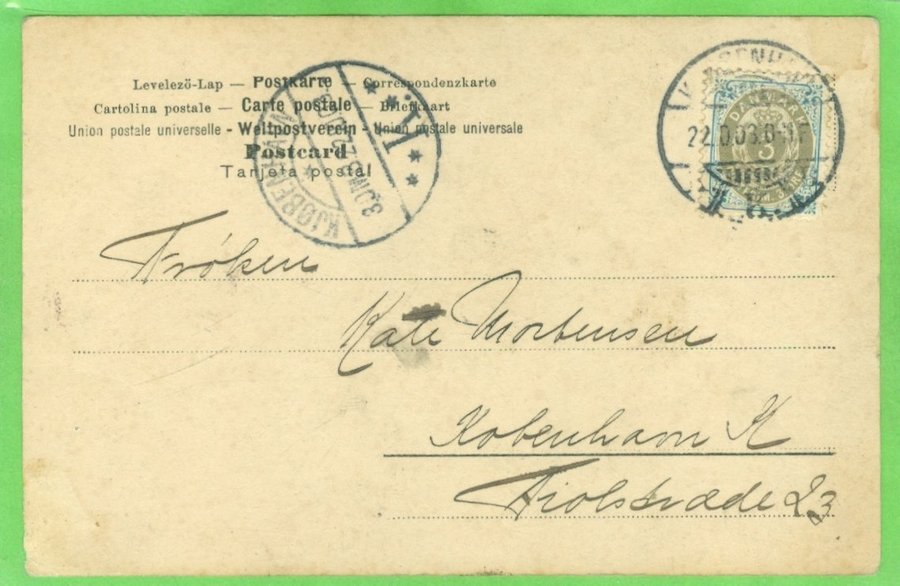 Levelező-Lap — Postkarte — Correspondenzkarte
Cartolina postale — Carte postale — Briefkaart
Union postale universelle - Weltpostverein - Union postale universale
Postcard
Tarjeta postal
KJØBENHAVN
K.
DANMARK
3
Frøken
Kate Mortensen
København K
Fiolstræde 23